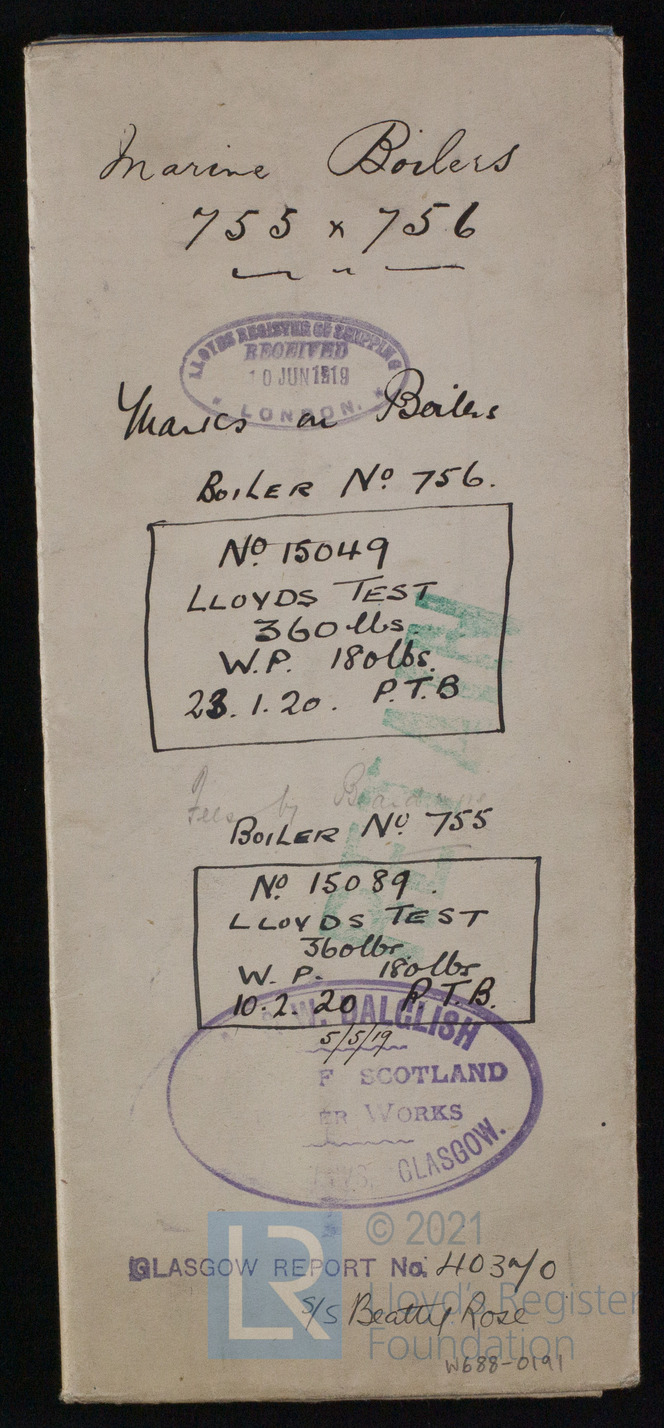 Marine Boilers
755 x 756
LLOYDS REGISTER OF SHIPPING
RECEIVED
10 JUN 1919
LONDON.
Marks on Boilers
BOILER No 756.
No 15049
LLOYDS TEST
360 lbs.
W.P. 180 lbs.
23.1.20. P.T.B
RETAIN
Fees by
BOILER No 755
No 15089.
LLOYDS TEST
360 lbs.
W.P. 180 lbs
10.2.20 P.T.B.
W. DALGLISH
5/5/19
F SCOTLAND
ER WORKS
GLASGOW.
© 2021
LR
GLASGOW REPORT No.
Lloyd's Register
S/S Beatty Rose
Foundation
W688-0191